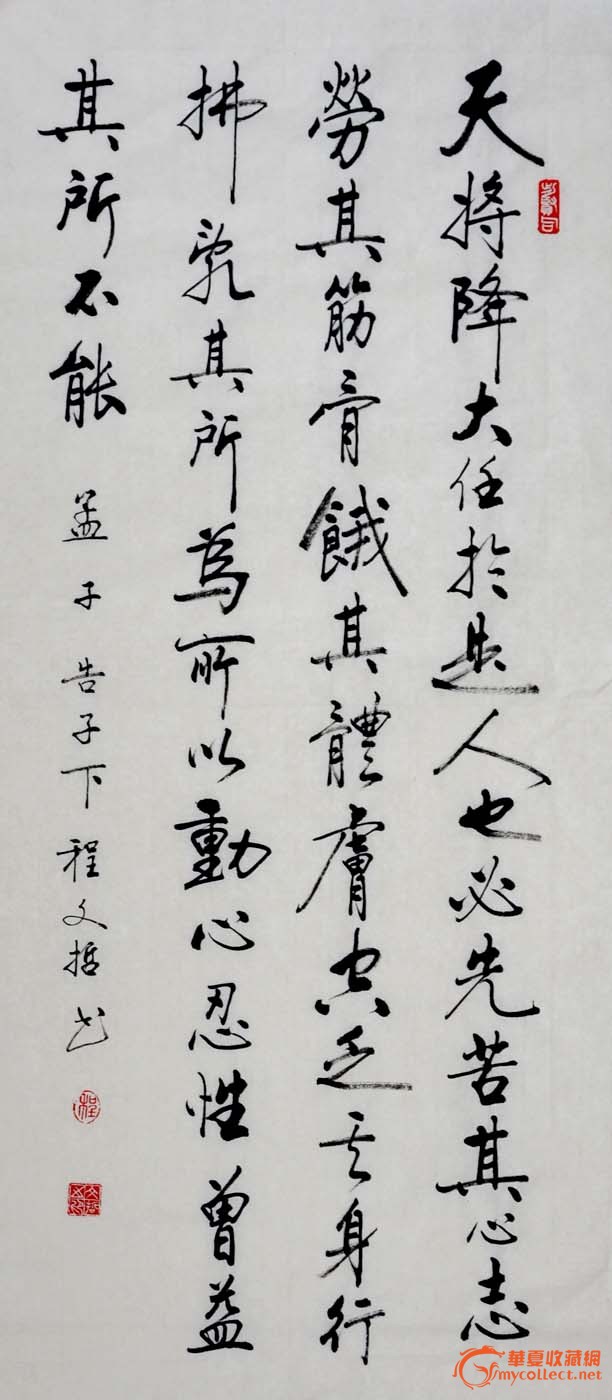 天将降大任於是人也必先苦其心志
勞其筋骨餓其體膚空乏其身行
拂乱其所為所以動心忍性曾益
其所不能
孟子告子下程文哲书
華夏收藏網
mycollect.net